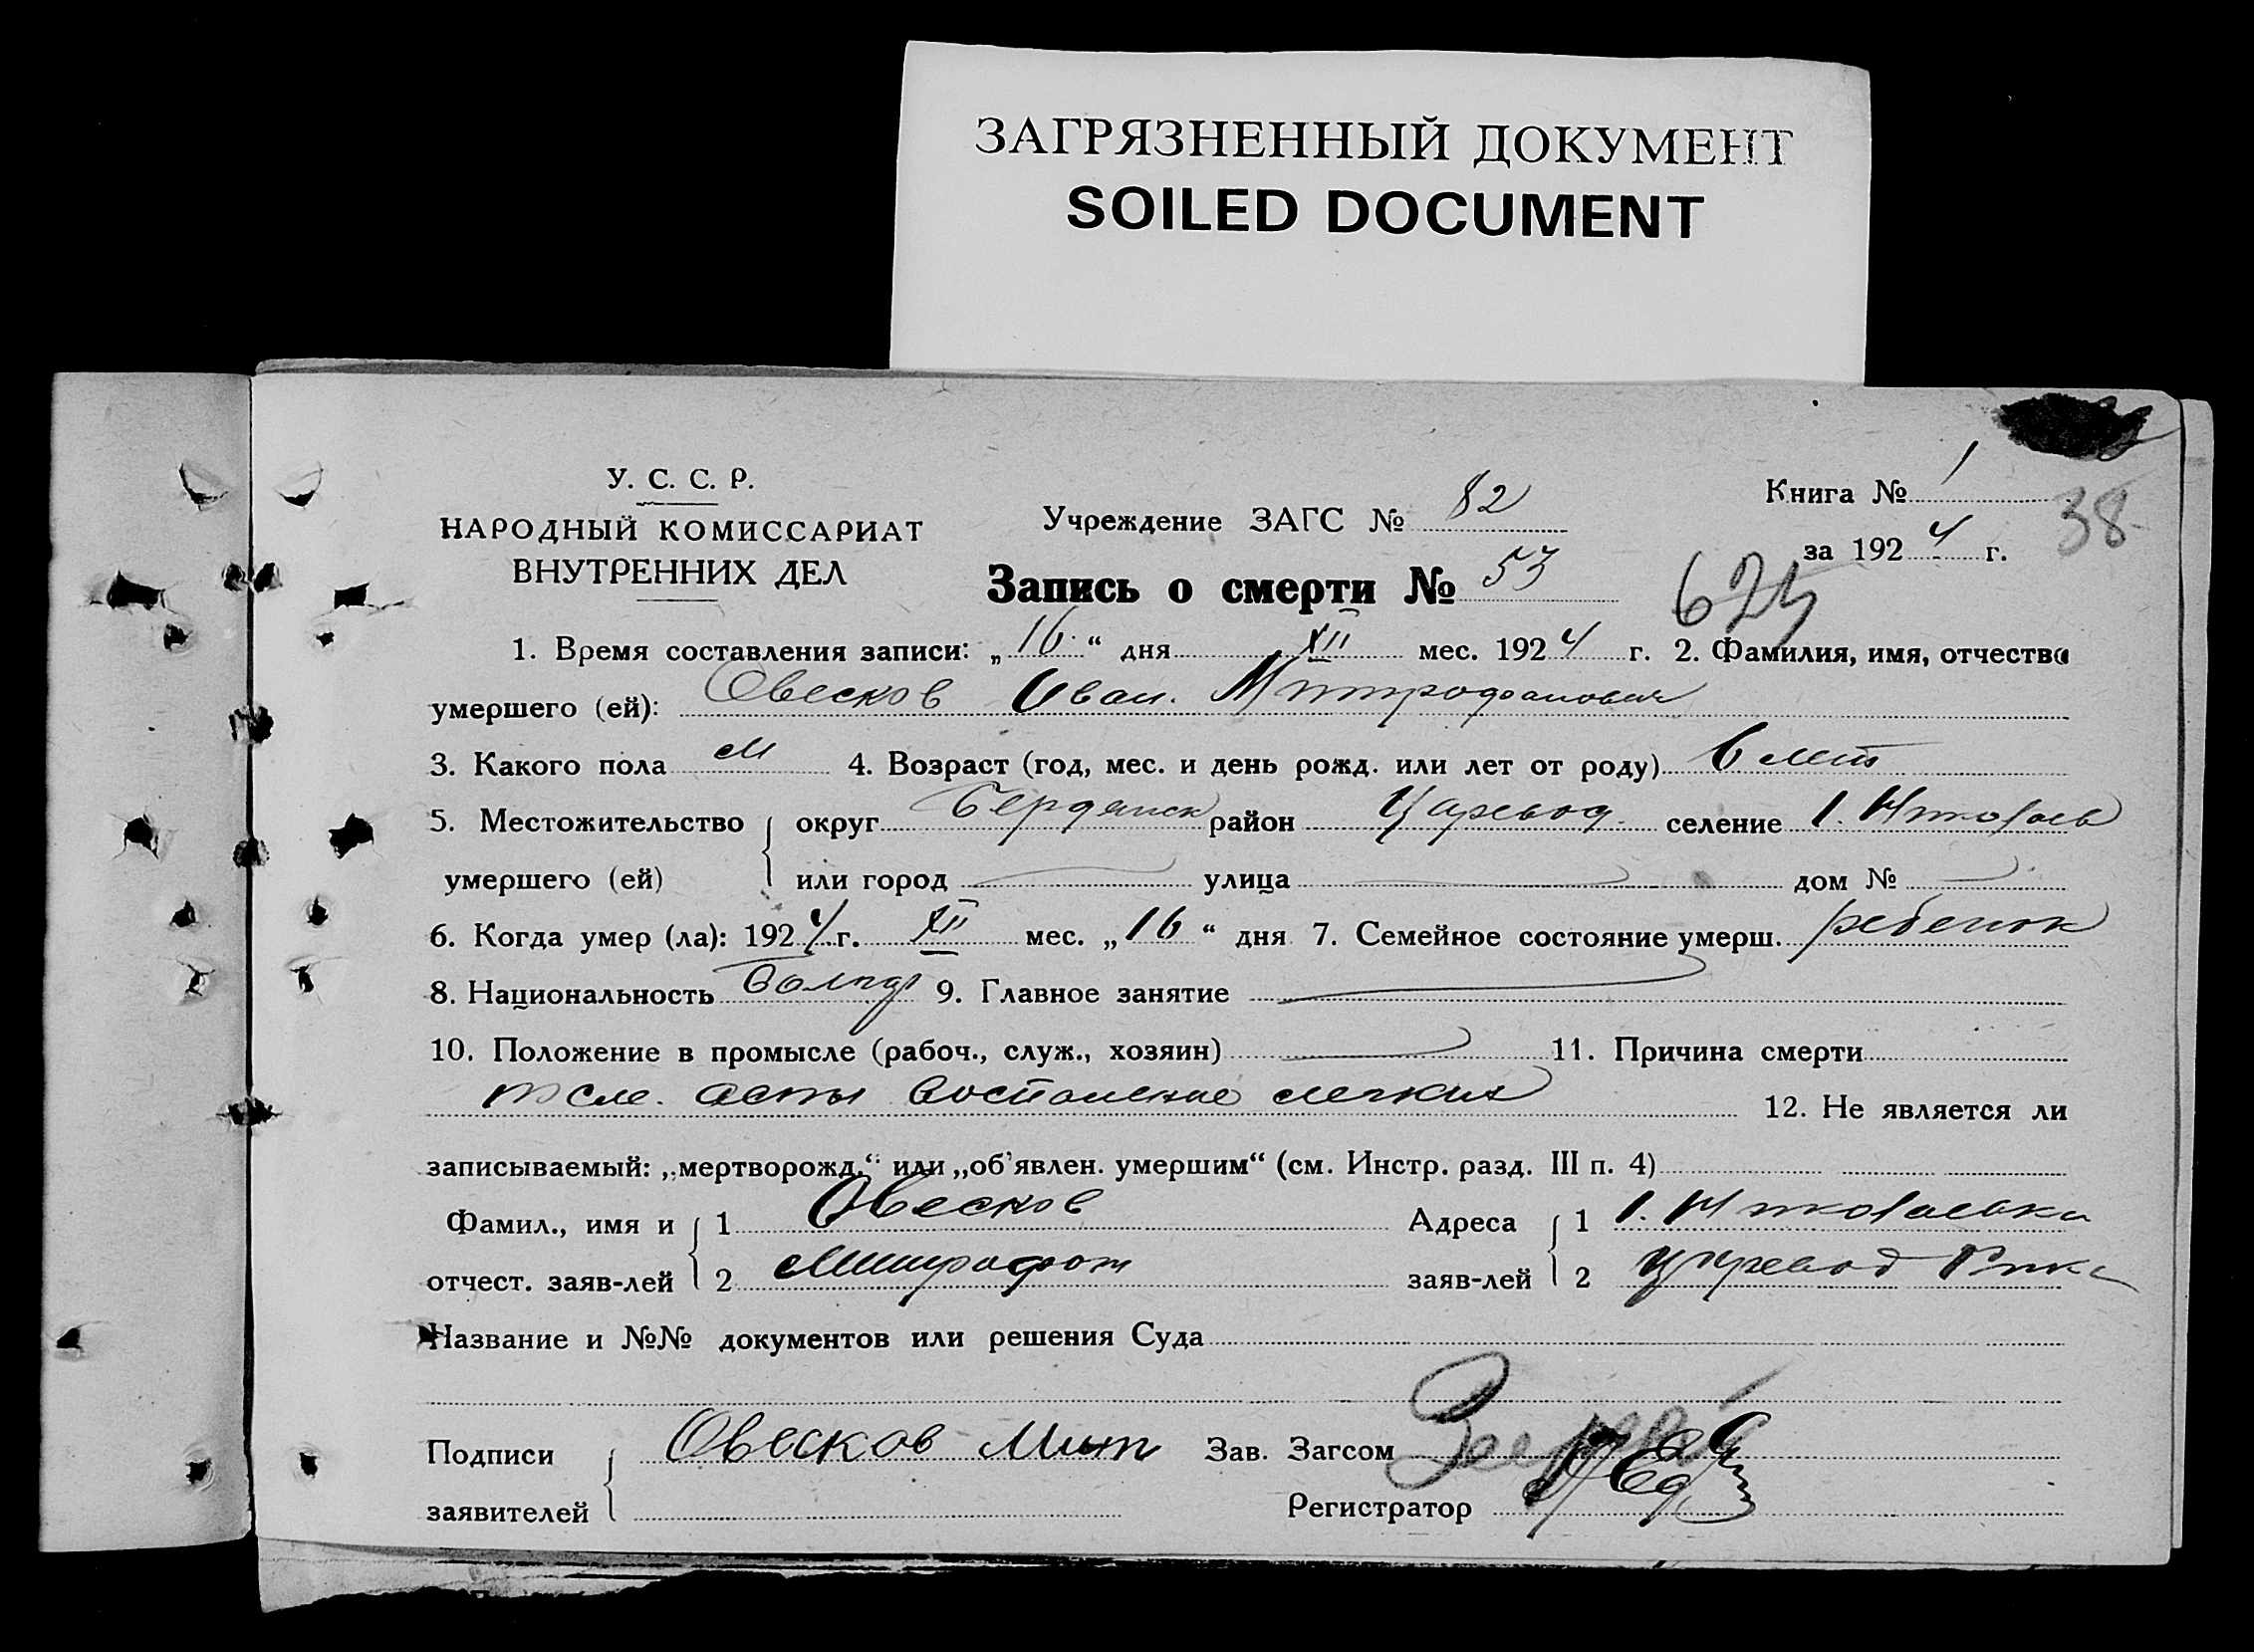 ЗАГРЯЗНЕННЫЙ ДОКУМЕНТ
SOILED DOCUMENT
У. С. С. Р.
НАРОДНЫЙ КОМИССАРИАТ
ВНУТРЕННИХ ДЕЛ
Учреждение ЗАГС № 82
Книга № 1
за 1924 г.
38
Запись о смерти № 53
1. Время составления записи: „16“ дня XII мес. 1924 г. 2. Фамилия, имя, отчество
умершего (ей): Овесков Иван. Митрофанович
3. Какого пола м 4. Возраст (год, мес. и день рожд. или лет от роду) 6 лет
5. Местожительство округ Бердянск район Царевод. селение I. Николаев
умершего (ей) или город улица дом №
6. Когда умер (ла): 1924 г. XII мес. „16“ дня 7. Семейное состояние умерш. ребенок
8. Национальность Болгар 9. Главное занятие
10. Положение в промысле (рабоч., служ., хозяин) 11. Причина смерти
после оспы воспаление легких
12. Не является ли
записываемый: „мертворожд.“ или „об'явлен. умершим“ (см. Инстр. разд. III п. 4)
Фамил., имя и 1 Овесков Адреса 1 I. Николаевка
отчест. заяв-лей 2 Митрофан заяв-лей 2 Царевод Рика
Название и №№ документов или решения Суда
Подписи Овесков Мит Зав. Загсом
заявителей Регистратор